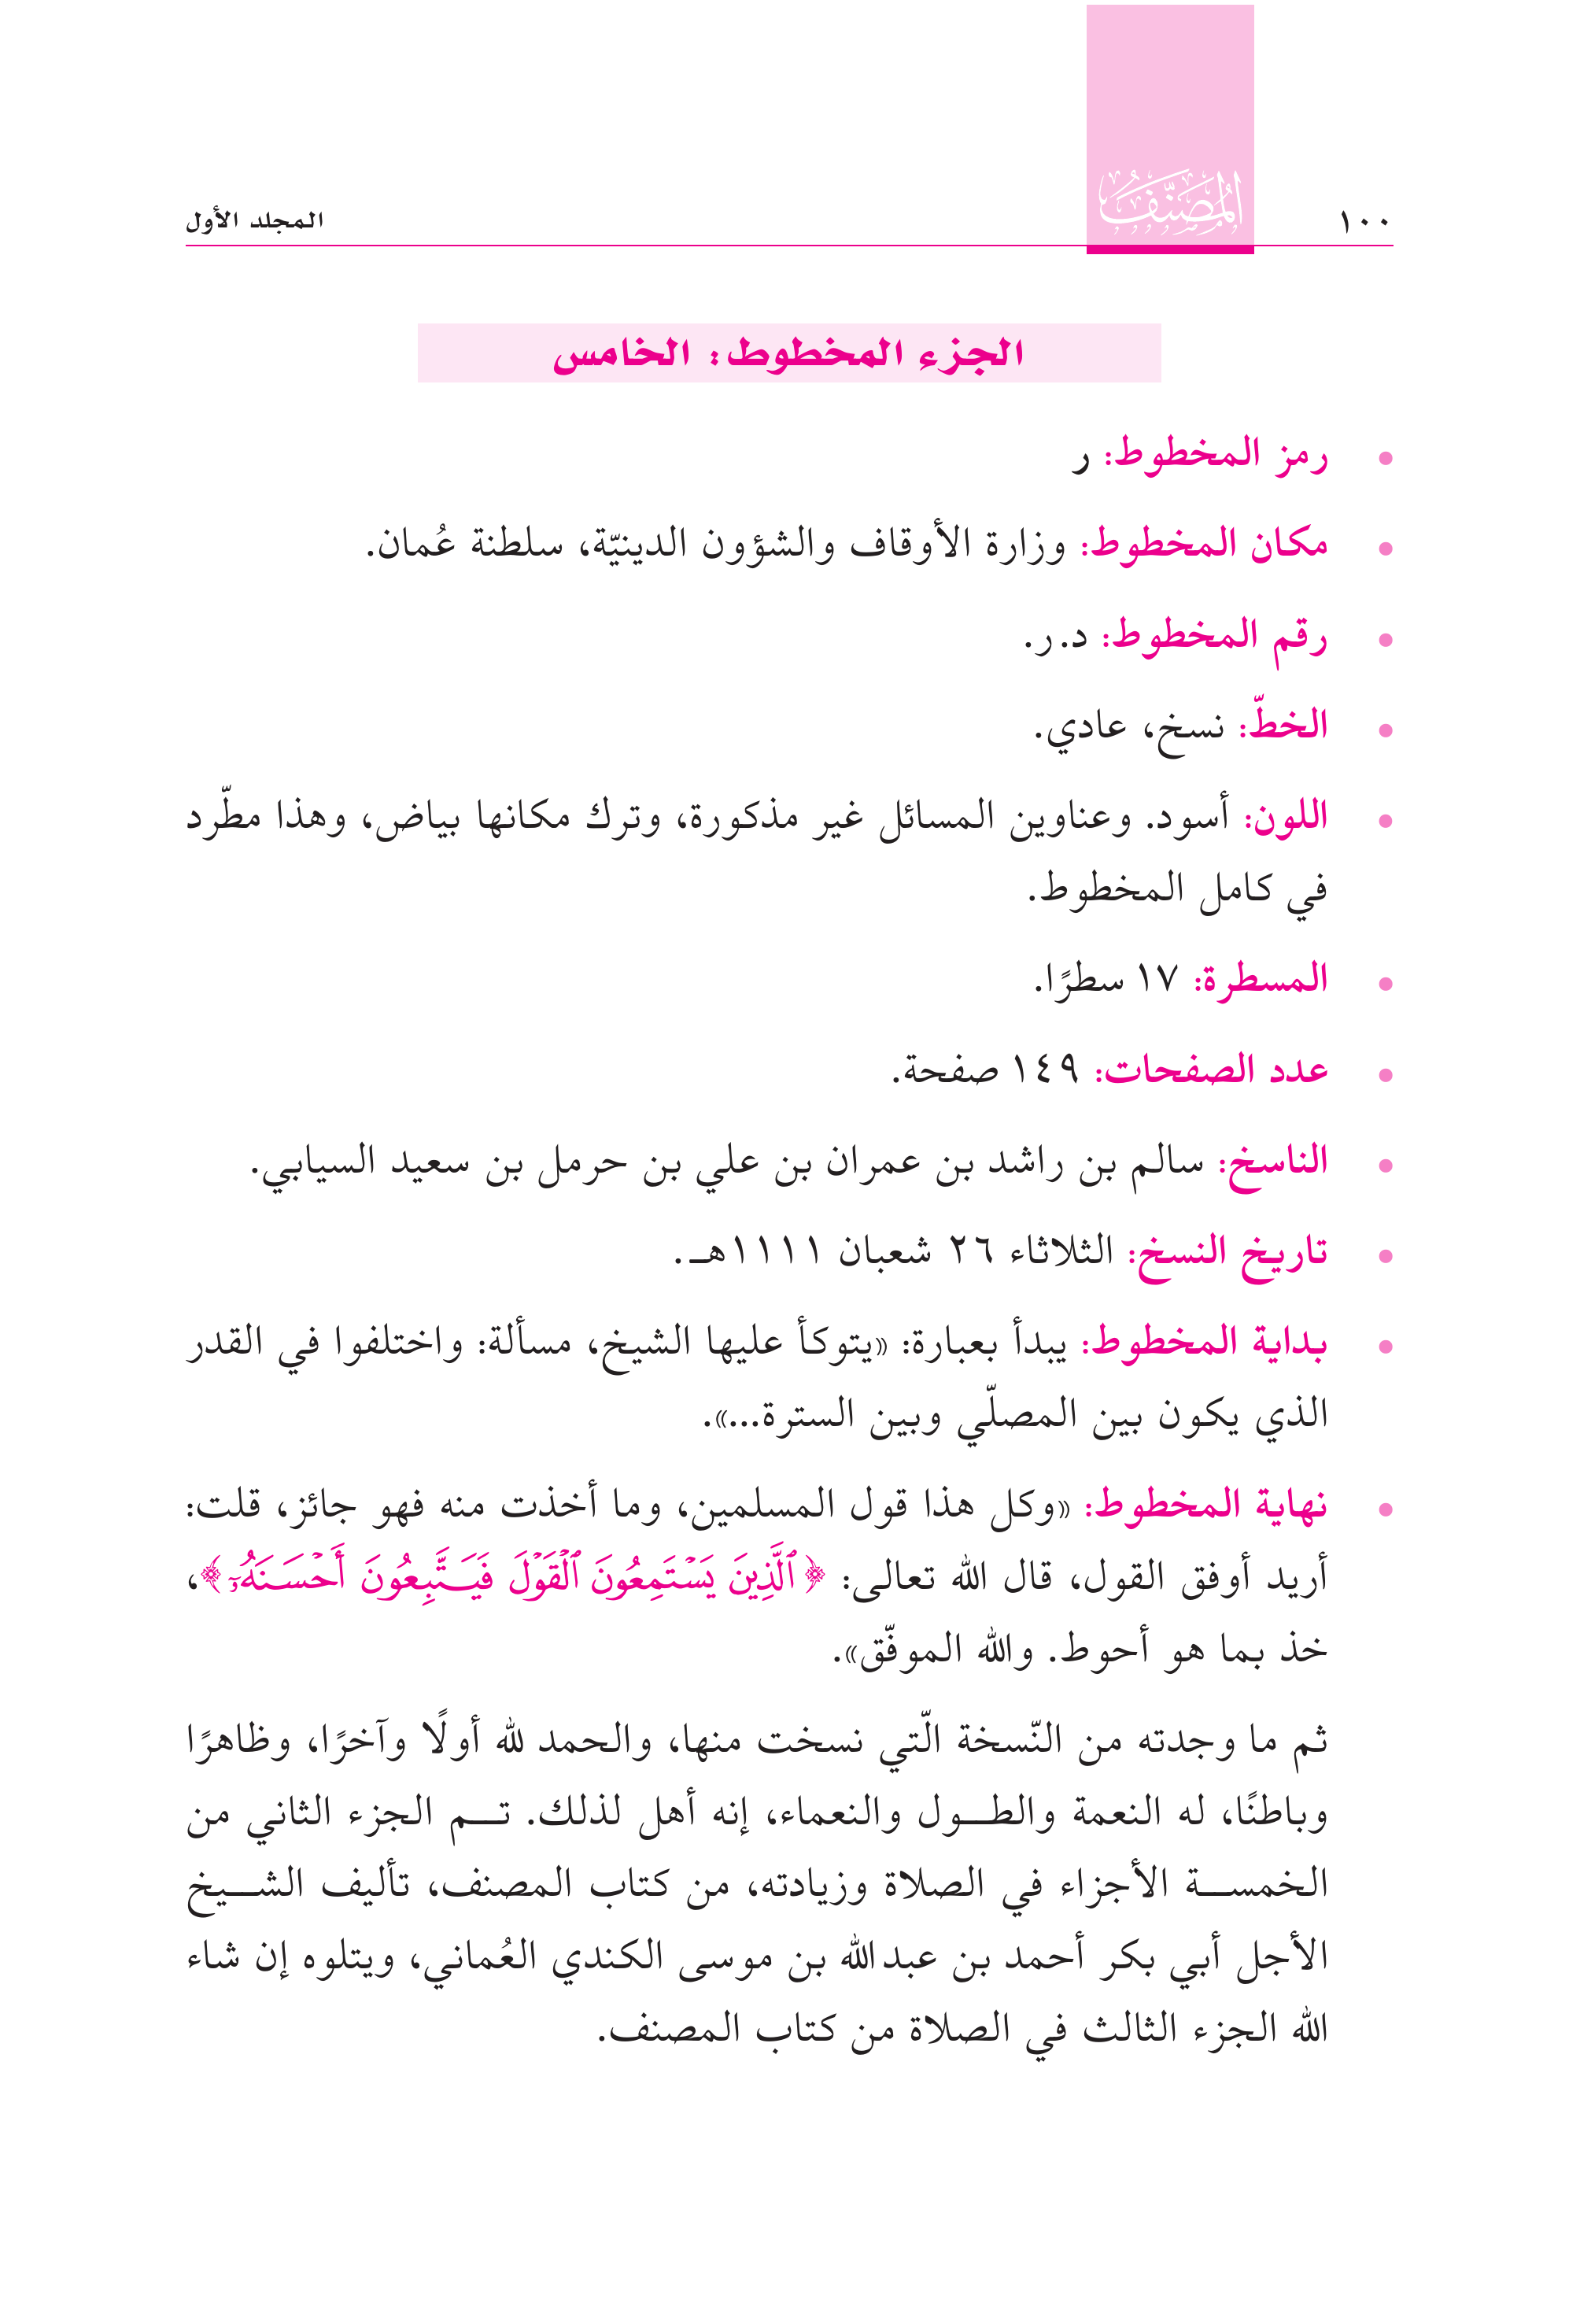 ١٠٠
المصنّف
المجلد الأول
الجزء المخطوط: الخامس
• رمز المخطوط: ر
• مكان المخطوط: وزارة الأوقاف والشؤون الدينيّة، سلطنة عُمان.
• رقم المخطوط: د.ر.
• الخطّ: نسخ، عادي.
• اللون: أسود. وعناوين المسائل غير مذكورة، وترك مكانها بياض، وهذا مطّرد
في كامل المخطوط.
• المسطرة: ١٧ سطرًا.
• عدد الصفحات: ١٤٩ صفحة.
• الناسخ: سالم بن راشد بن عمران بن علي بن حرمل بن سعيد السيابي.
• تاريخ النسخ: الثلاثاء ٢٦ شعبان ١١١١هـ.
• بداية المخطوط: يبدأ بعبارة: «يتوكأ عليها الشيخ، مسألة: واختلفوا في القدر
الذي يكون بين المصلّي وبين السترة...».
• نهاية المخطوط: «وكل هذا قول المسلمين، وما أخذت منه فهو جائز، قلت:
أريد أوفق القول، قال الله تعالى: ﴿ٱلَّذِينَ يَسْتَمِعُونَ ٱلْقَوْلَ فَيَتَّبِعُونَ أَحْسَنَهُۥٓ﴾،
خذ بما هو أحوط. والله الموفّق».
ثم ما وجدته من النّسخة الّتي نسخت منها، والحمد لله أولًا وآخرًا، وظاهرًا
وباطنًا، له النعمة والطـول والنعماء، إنه أهل لذلك. تـم الجزء الثاني من
الخمسـة الأجزاء في الصلاة وزيادته، من كتاب المصنف، تأليف الشـيخ
الأجل أبي بكر أحمد بن عبدالله بن موسى الكندي العُماني، ويتلوه إن شاء
الله الجزء الثالث في الصلاة من كتاب المصنف.